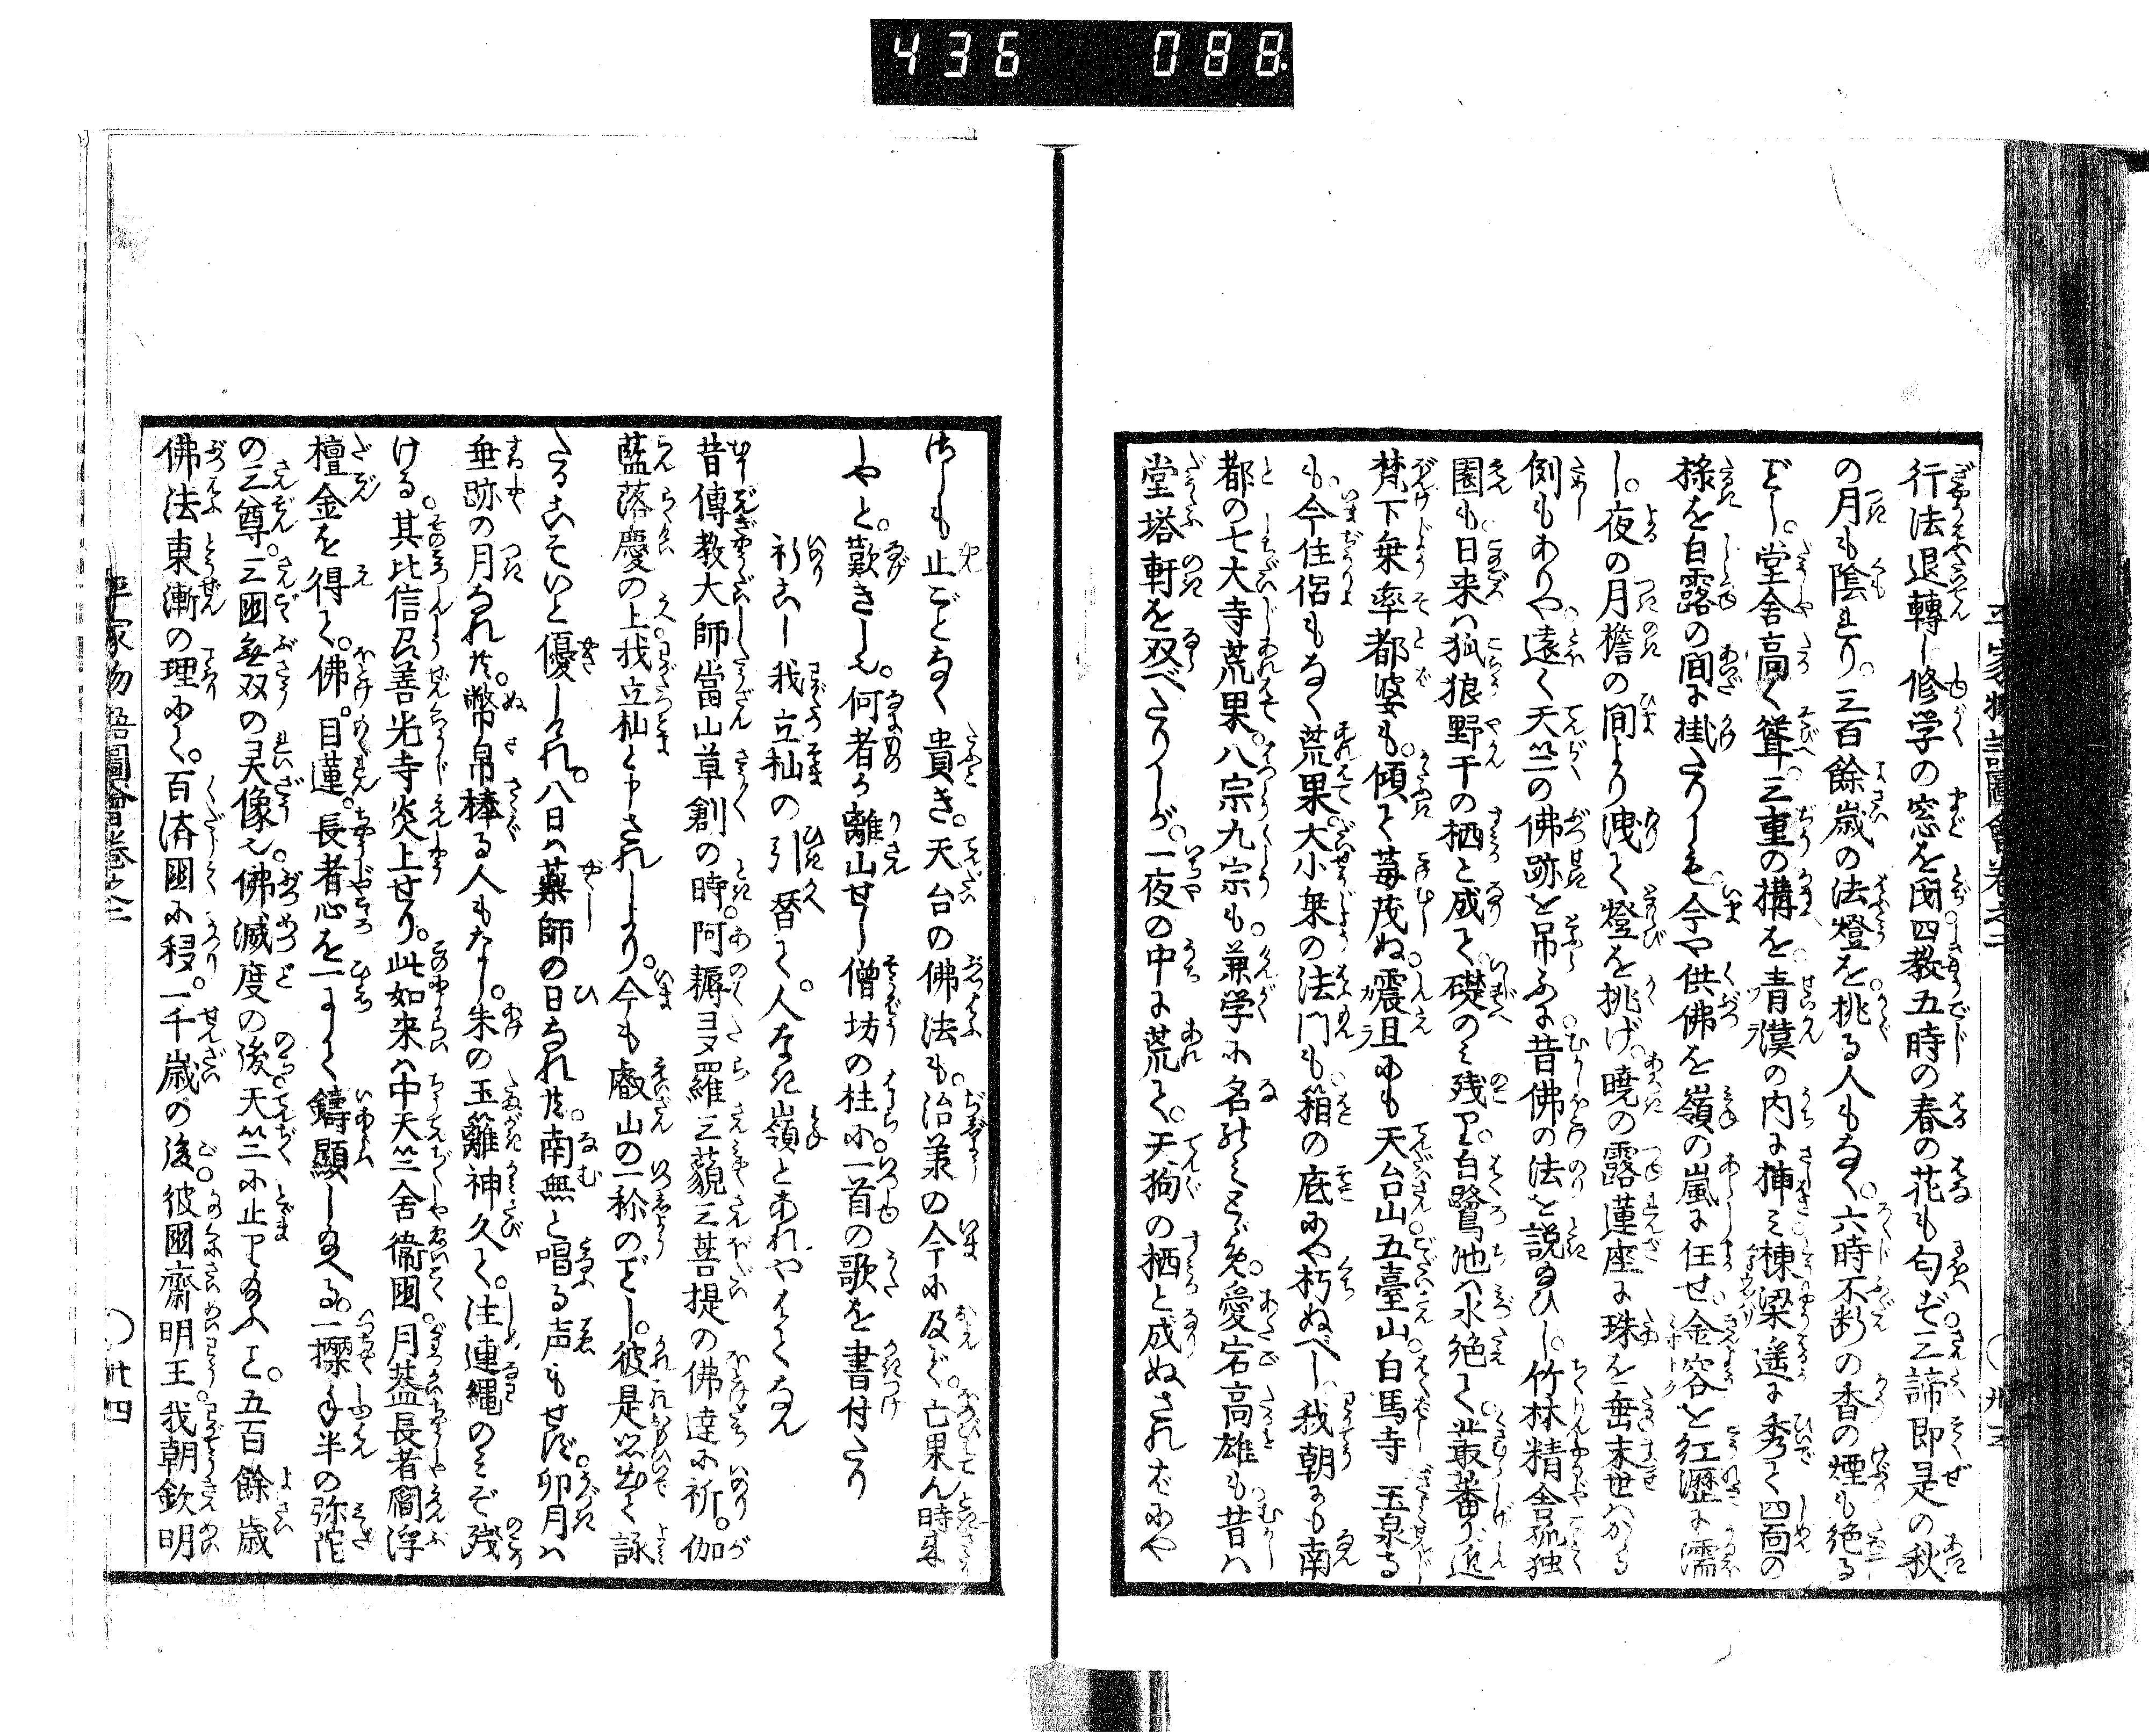 436 088.
平家物語圖會巻之二
行法退轉し修学の窓を閉四教五時の春の花も匂ず三諦即是の秋
の月も陰れり。三百餘歳の法燈を。挑る人もなく。六時不断の香の煙も絶る
どし。堂舎高く聳。三重の構を。青漢の内に挿ミ棟梁遥に秀て四面の
椽を白露の間に掛たりしも。今や供佛を嶺の嵐に任せ。金容を紅瀝に濡
し。夜の月檐の間より洩て燈を挑げ。暁の露蓮座に珠を垂末世ハかゝる
例もありや。遠く天竺の佛跡を吊ふに昔佛の法を説給ひし。竹林精舎孤独
園も日来ハ狐狼野干の栖と成て。礎のミ残り。白鷺池ハ水絶て。叢蕃り。退
梵下乗卒都婆も。傾て苺茂ぬ。震旦にも天台山五臺山。白馬寺玉泉寺
も。今住侶もなく荒果。大小乗の法門も。箱の底にや朽ぬべし。我朝にも南
都の七大寺荒果。八宗九宗も。兼学に名のミとゞめ。愛宕高雄も昔ハ
堂塔軒を双べたりしが。一夜の中に荒て。天狗の栖と成ぬされどにや
さしも止ごとなく貴き。天台の佛法も。治羕の今に及ど。亡果ん時来
しやと。歎きし也。何者か離山せし僧坊の柱に。一首の歌を書付たり
祈こし我立杣の引替て。人なき嶺とあれやはてなん
昔傳教大師當山草創の時。阿耨ヨタ羅三藐三菩提の佛達に祈。伽
藍落慶の上。我立杣と申されしより。今も叡山の一称のどし。彼是思出て詠
たるこそいと優しけれ。八日ハ薬師の日なれ共。南無と唱る声もせず。卯月ハ
垂跡の月なれ共。幣帛捧る人もなし。朱の玉籬神久て。注連縄のミぞ残
ける。其比信刕善光寺炎上せり。此如来ハ中天竺舎衛國。月蓋長者閻浮
檀金を得て。佛。目蓮。長者心を一にして鑄顕し給へる。一擽手半の弥陀
の三尊。三國無双の灵像也。佛滅度の後。天竺に止り給ふこと。五百餘歳
佛法東漸の理にて。百済國に移。一千歳の後彼國齋明王我朝欽明
平家物語圖會巻之二
卅四